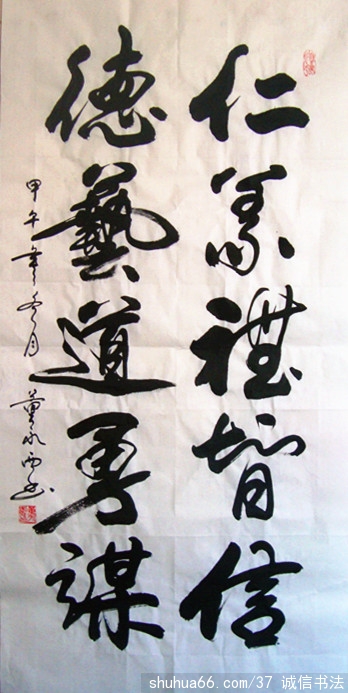 仁義禮智信
德藝道勇謀
甲午年冬月 董永书
shuhua66.com/37 诚信书法